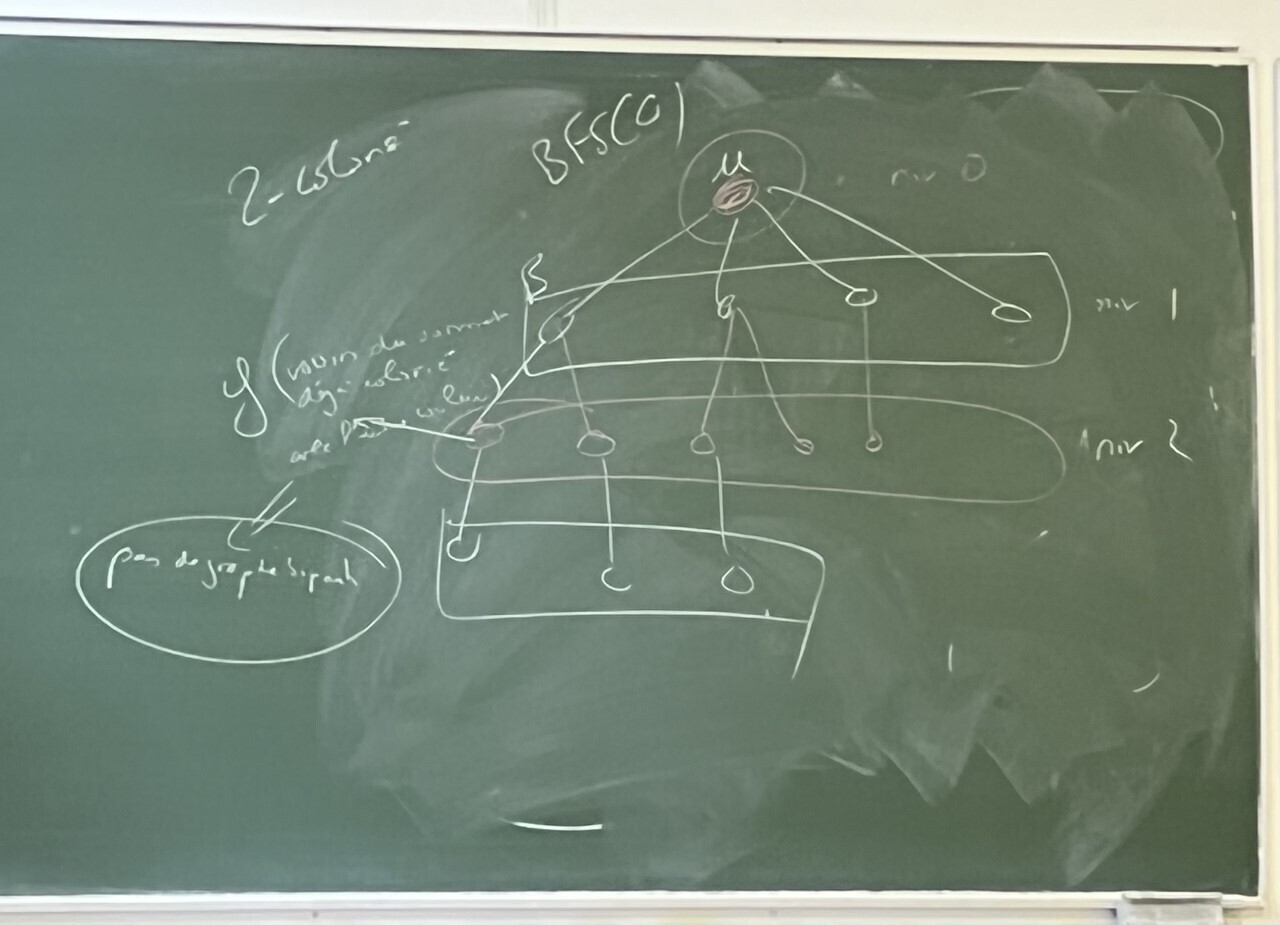 2-colorié
BFS(0)
u
niv 0
B
niv 1
y (voisin du sommet
déjà colorié
avec couleur)
niv 2
pas de graphe biparti